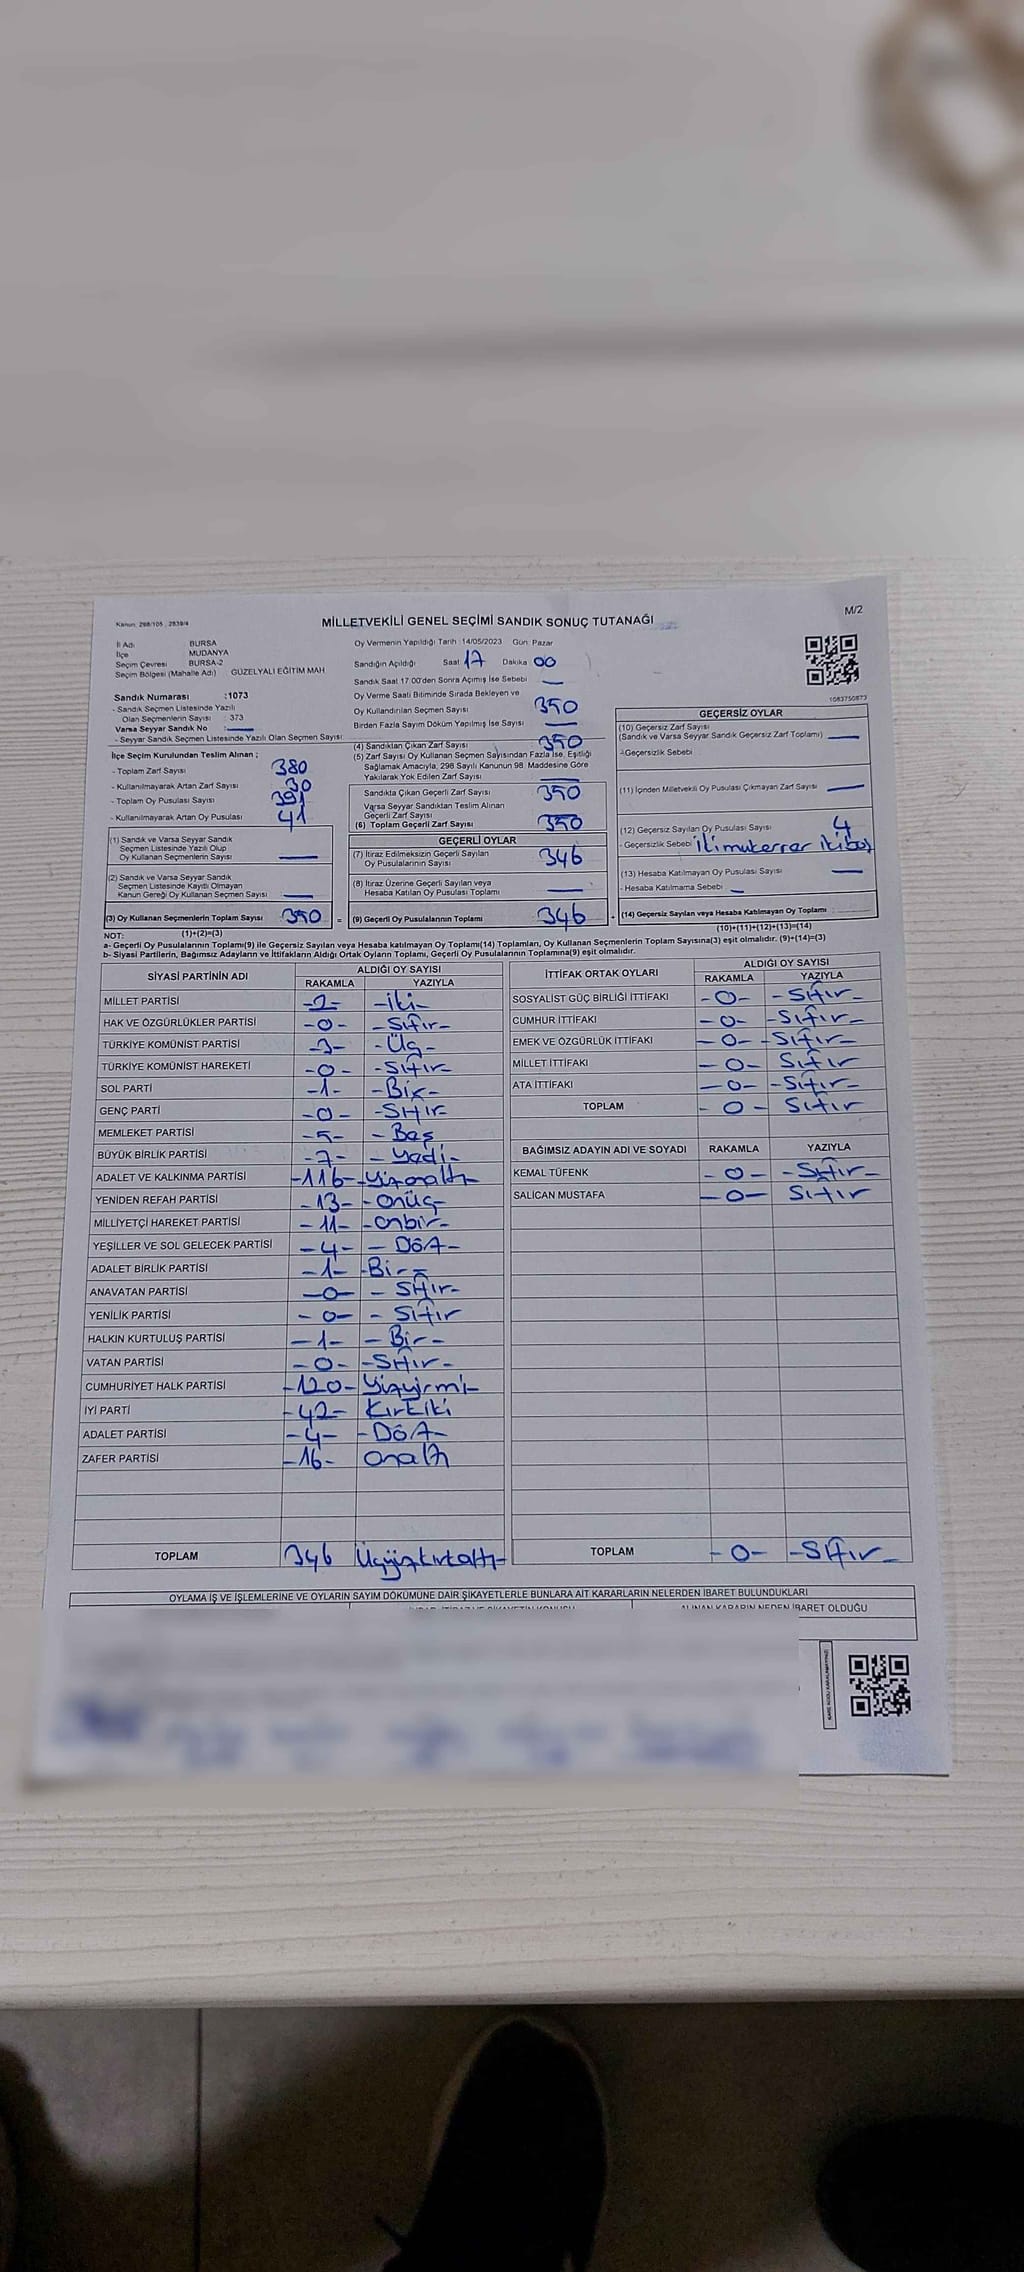 Kanun: 298/105, 2839/4
MİLLETVEKİLİ GENEL SEÇİMİ SANDIK SONUÇ TUTANAĞI
M/2
İl Adı BURSA
İlçe MUDANYA
Seçim Çevresi BURSA-2
Seçim Bölgesi (Mahalle Adı) GÜZELYALI EĞİTİM MAH
Sandık Numarası :1073
- Sandık Seçmen Listesinde Yazılı
Olan Seçmenlerin Sayısı : 373
Varsa Seyyar Sandık No :
- Seyyar Sandık Seçmen Listesinde Yazılı Olan Seçmen Sayısı:
Oy Vermenin Yapıldığı Tarih :14/05/2023 Gün: Pazar
Sandığın Açıldığı Saat 17 Dakika 00
Sandık Saat 17:00'den Sonra Açımış İse Sebebi —
Oy Verme Saati Bitiminde Sırada Bekleyen ve
Oy Kullandırılan Seçmen Sayısı 350
Birden Fazla Sayım Döküm Yapılmış İse Sayısı —
1083750873
İlçe Seçim Kurulundan Teslim Alınan ;
- Toplam Zarf Sayısı 380
- Kullanılmayarak Artan Zarf Sayısı 30
- Toplam Oy Pusulası Sayısı 391
- Kullanılmayarak Artan Oy Pusulası 41
(1) Sandık ve Varsa Seyyar Sandık
Seçmen Listesinde Yazılı Olup
Oy Kullanan Seçmenlerin Sayısı —
(2) Sandık ve Varsa Seyyar Sandık
Seçmen Listesinde Kayıtlı Olmayan
Kanun Gereği Oy Kullanan Seçmen Sayısı —
(3) Oy Kullanan Seçmenlerin Toplam Sayısı 350 =
(4) Sandıktan Çıkan Zarf Sayısı 350
(5) Zarf Sayısı Oy Kullanan Seçmen Sayısından Fazla İse, Eşitliği
Sağlamak Amacıyla, 298 Sayılı Kanunun 98. Maddesine Göre
Yakılarak Yok Edilen Zarf Sayısı —
Sandıkta Çıkan Geçerli Zarf Sayısı 350
Varsa Seyyar Sandıktan Teslim Alınan
Geçerli Zarf Sayısı
(6) Toplam Geçerli Zarf Sayısı 350
GEÇERLİ OYLAR
(7) İtiraz Edilmeksizin Geçerli Sayılan
Oy Pusulalarının Sayısı 346
(8) İtiraz Üzerine Geçerli Sayılan veya
Hesaba Katılan Oy Pusulası Toplamı —
(9) Geçerli Oy Pusulalarının Toplamı 346
GEÇERSİZ OYLAR
(10) Geçersiz Zarf Sayısı
(Sandık ve Varsa Seyyar Sandık Geçersiz Zarf Toplamı) —
-Geçersizlik Sebebi
(11) İçinden Milletvekili Oy Pusulası Çıkmayan Zarf Sayısı —
(12) Geçersiz Sayılan Oy Pusulası Sayısı 4
- Geçersizlik Sebebi iki mükerrer iki boş
(13) Hesaba Katılmayan Oy Pusulası Sayısı —
- Hesaba Katılmama Sebebi —
(14) Geçersiz Sayılan veya Hesaba Katılmayan Oy Toplamı
NOT: (1)+(2)=(3) (10)+(11)+(12)+(13)=(14)
a- Geçerli Oy Pusulaları Toplamı(9) ile Geçersiz Sayılan veya Hesaba katılmayan Oy Toplamı(14) Toplamları, Oy Kullanan Seçmenlerin Toplam Sayısına(3) eşit olmalıdır. (9)+(14)=(3)
b- Siyasi Partilerin, Bağımsız Adayların ve İttifakların Aldığı Ortak Oyların Toplamı, Geçerli Oy Pusulalarının Toplamına(9) eşit olmalıdır.
SİYASİ PARTİNİN ADI ALDIĞI OY SAYISI
RAKAMLA YAZIYLA
MİLLET PARTİSİ -2- -iki-
HAK VE ÖZGÜRLÜKLER PARTİSİ -0- -Sıfır-
TÜRKİYE KOMÜNİST PARTİSİ -3- -Üç-
TÜRKİYE KOMÜNİST HAREKETİ -0- -Sıfır-
SOL PARTİ -1- -Bir-
GENÇ PARTİ -0- -Sıfır
MEMLEKET PARTİSİ -5- -Beş
BÜYÜK BİRLİK PARTİSİ -7- -Yedi-
ADALET VE KALKINMA PARTİSİ -116- -Yüzonaltı-
YENİDEN REFAH PARTİSİ -13- -onüç-
MİLLİYETÇİ HAREKET PARTİSİ -11- -onbir-
YEŞİLLER VE SOL GELECEK PARTİSİ -4- -Dört-
ADALET BİRLİK PARTİSİ -1- -Bir-
ANAVATAN PARTİSİ -0- -Sıfır-
YENİLİK PARTİSİ -0- -Sıfır
HALKIN KURTULUŞ PARTİSİ -1- -Bir-
VATAN PARTİSİ -0- -Sıfır-
CUMHURİYET HALK PARTİSİ -120- Yüzyirmi-
İYİ PARTİ -42- Kırkiki
ADALET PARTİSİ -4- -Dört-
ZAFER PARTİSİ -16- Onaltı
TOPLAM 346 Üçyüzkırkaltı-
İTTİFAK ORTAK OYLARI ALDIĞI OY SAYISI
RAKAMLA YAZIYLA
SOSYALİST GÜÇ BİRLİĞİ İTTİFAKI -0- -Sıfır-
CUMHUR İTTİFAKI -0- -Sıfır-
EMEK VE ÖZGÜRLÜK İTTİFAKI -0- -Sıfır-
MİLLET İTTİFAKI -0- Sıfır
ATA İTTİFAKI -0- -Sıfır-
TOPLAM -0- Sıfır
BAĞIMSIZ ADAYIN ADI VE SOYADI RAKAMLA YAZIYLA
KEMAL TÜFENK -0- -Sıfır-
SALİCAN MUSTAFA -0- Sıfır
TOPLAM -0- -Sıfır-
OYLAMA İŞ VE İŞLEMLERİNE VE OYLARIN SAYIM DÖKÜMÜNE DAİR ŞİKAYETLERLE BUNLARA AİT KARARLARIN NELERDEN İBARET BULUNDUKLARI
ALINAN KARARIN NEDEN İBARET OLDUĞU